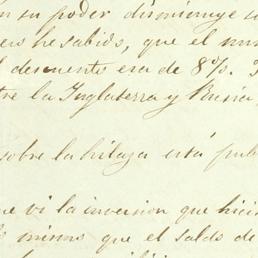 su poder disminuye
he sabido, que el
descuento era de 8%.
la Inglaterra y Rusia,
sobre la hilaza está
vi la inversion que
mismo que el saldo de